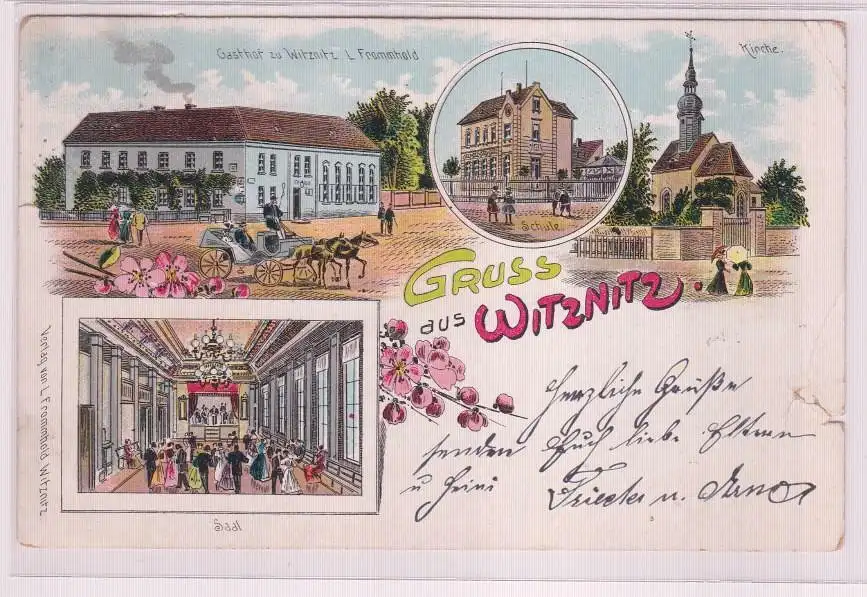 Gasthof zu Witznitz L Frommhold
Kirche.
Schule
GRUSS
aus WITZNITZ.
Verlag von L Frommhold Witznitz
Saal
Herzliche Grüße
senden Euch liebe Eltern
u Heini Frieda u. Arno